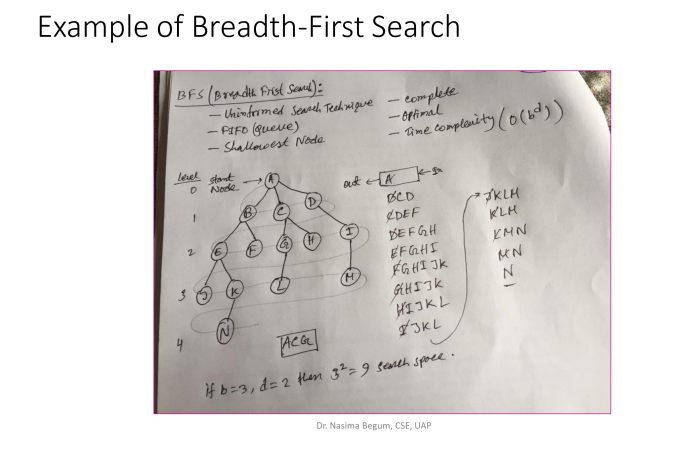 Example of Breadth-First Search
BFS (Breadth Frist Search):
— Uninformed Search Technique
— FIFO (Queue)
— Shallowest Node
— complete
— optimal
— Time complexity (O(b^d))
Level
0
Start Node
A
out
A
in
1
B
C
D
2
E
F
G
H
I
3
J
K
L
M
4
N
BCD
CDEF
DEFGH
EFGHI
FGHIJK
GHIJK
HIJKL
IJKL
JKLM
KLM
LMN
MN
N
—
ACG
if b=3, d=2 then 3²=9 search space.
Dr. Nasima Begum, CSE, UAP